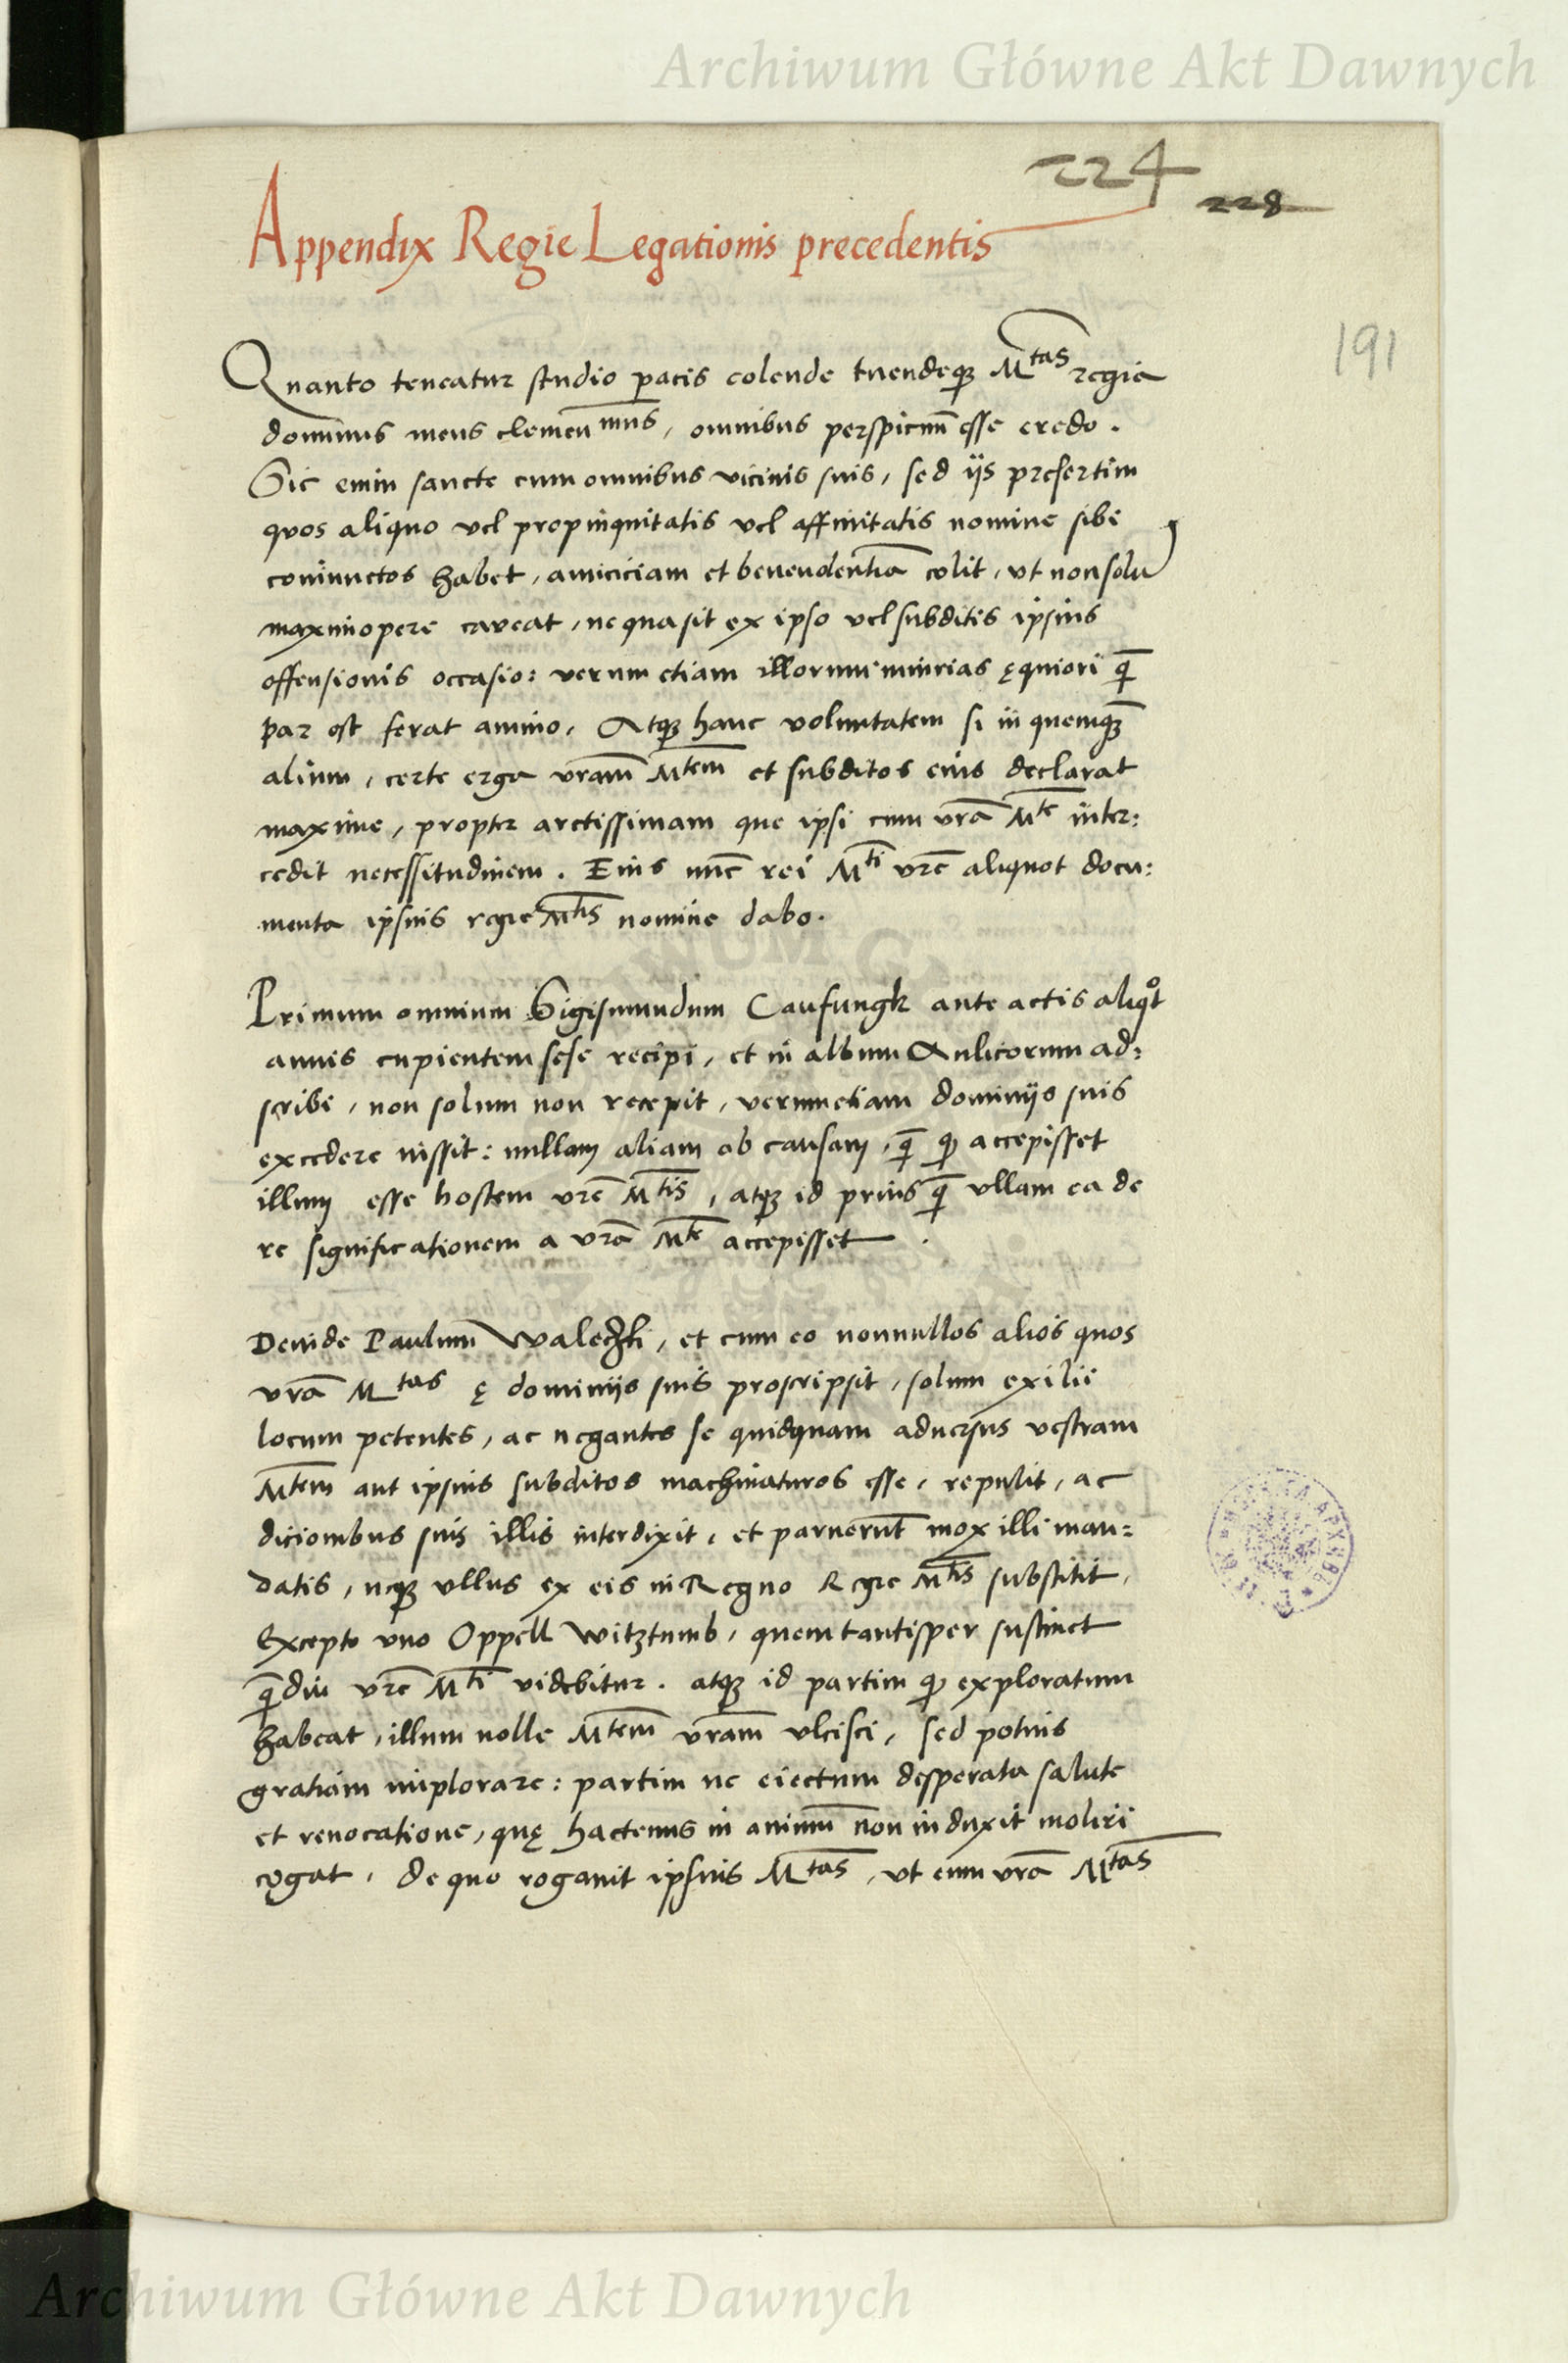 Archiwum Główne Akt Dawnych
224
228
191
Appendix Regie Legationis precedentis
Quanto teneatur studio pacis colende tuendeq̃ʒ M^tas regia
dominus meus clemen^mus, omnibus perspicuũ esse credo.
Sic enim sancte cum omnibus vicinis suis, sed ijs presertim
quos aliquo vel propinquitatis vel affinitatis nomine sibi
coniunctos habet, amiciciam et beneuolentia colit, vt non solũ
maximopere caveat, ne qua sit ex ipso vel subditis ipsius
offensionis occasio: verum etiam illorum iniurias ęquiori q̃
par est ferat animo. Atqʒ hanc voluntatem si in quemqʒ̃
alium, certe erga vrãm M^tem et subditos eius declarat
maxime, propter arctissimam que ipsi cum vrã M^te inter:
cedit necessitudinem. Eius nũc rei M^ti vrẽ aliquot docu:
menta ipsius regie M^tis nomine dabo.
Primum omnium Sigismundum Caufungk ante actis aliq°t
annis cupientem sese recipi, et in album Aulicorum ad:
scribi, non solum non recepit, verum etiam dominijs suis
excedere iussit: nullam aliam ob causam, q̃ qɔ accepisset
illum esse hostem vrẽ M^tis, atqʒ id prius q̃ vllam ea de
re significationem a vrã M^te accepisset.
Deinde Paulum Waleczki, et cum eo nonnullos alios quos
vrã M^tas ę dominijs suis proscripsit, solum exilii
locum petentes, ac negantes se quidquam aduersus vestram
M^tem aut ipsius subditos machinaturos esse, repulit, ac
dicionibus suis illis interdixit, et paruerũt mox illi man:
datis, neqʒ vllus ex eis in Regno Regie M^tis substitit,
Excepto vno Oppell Witztumb, quem tantisper sustinet
q̃diu vrẽ M^ti videbitur. atqʒ id partim qɔ exploratum
habeat, illum nolle M^tem vrãm vlcisci, sed potius
gratiam implorare: partim ne eiectum desperata salute
et reuocatione, quę hactenus in animũ non induxit moliri
cogat. De quo rogauit ipsius M^tas, vt eum vrã M^tas
Archiwum Główne Akt Dawnych